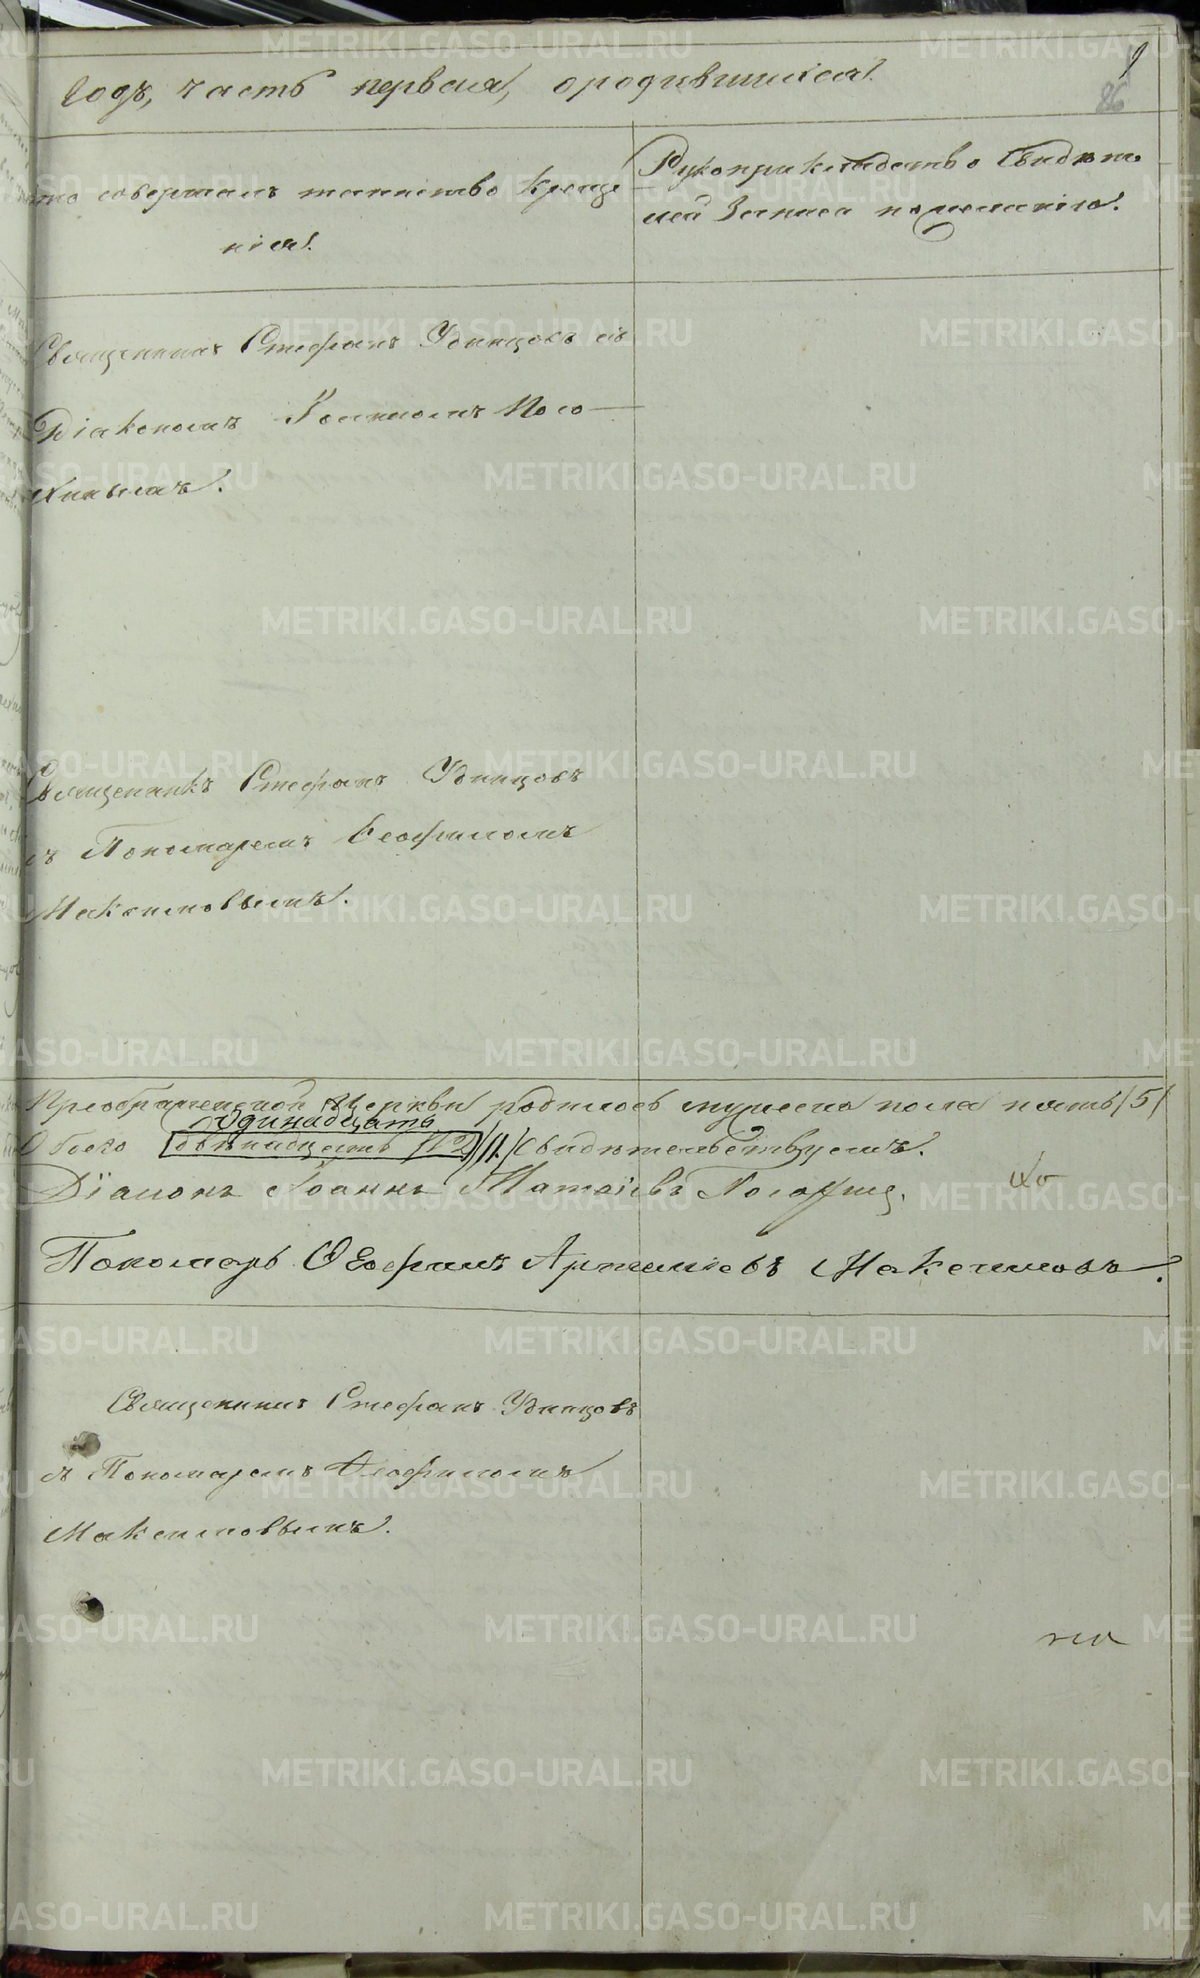 годъ, часть первая, ородившихся.
9
86
кто совершалъ таинство креще
нія.
Рукоприкладство свидѣте
лей записи пожеланію.
Священникъ Стефанъ Удинцовъ съ
Діакономъ Іоанномъ Пого
Священникъ Стефанъ Удинцовъ
съ Пономаремъ Ѳеофиломъ
Максимовымъ.
Преображенской Церкви родилось мужеска пола пять /5/
Одинадцать
Обоего двѣнадцать /12/ /11./ Свидѣтельствуемъ.
Діаконъ Іоаннъ Матѳіевъ
Пономарь Ѳеофилъ Артеміевъ Максимовъ.
Священникъ Стефанъ Удинцовъ
съ Пономаремъ Ѳеофиломъ
Максимовымъ.
METRIKI.GASO-URAL.RU